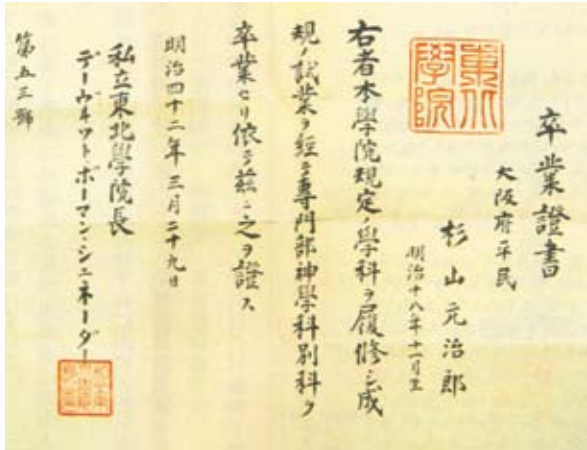 卒業證書
東北
學院
大阪府平民
杉山元治郎
明治十八年十一月生
右者本學院規定ノ學科ヲ履修シ成
規ノ試業ヲ經テ專門部神學科別科ヲ
卒業セリ依テ茲ニ之ヲ證ス
明治四十二年三月二十九日
私立東北學院長
デーヴィット・ボーマン・シュネーダー
第五三號